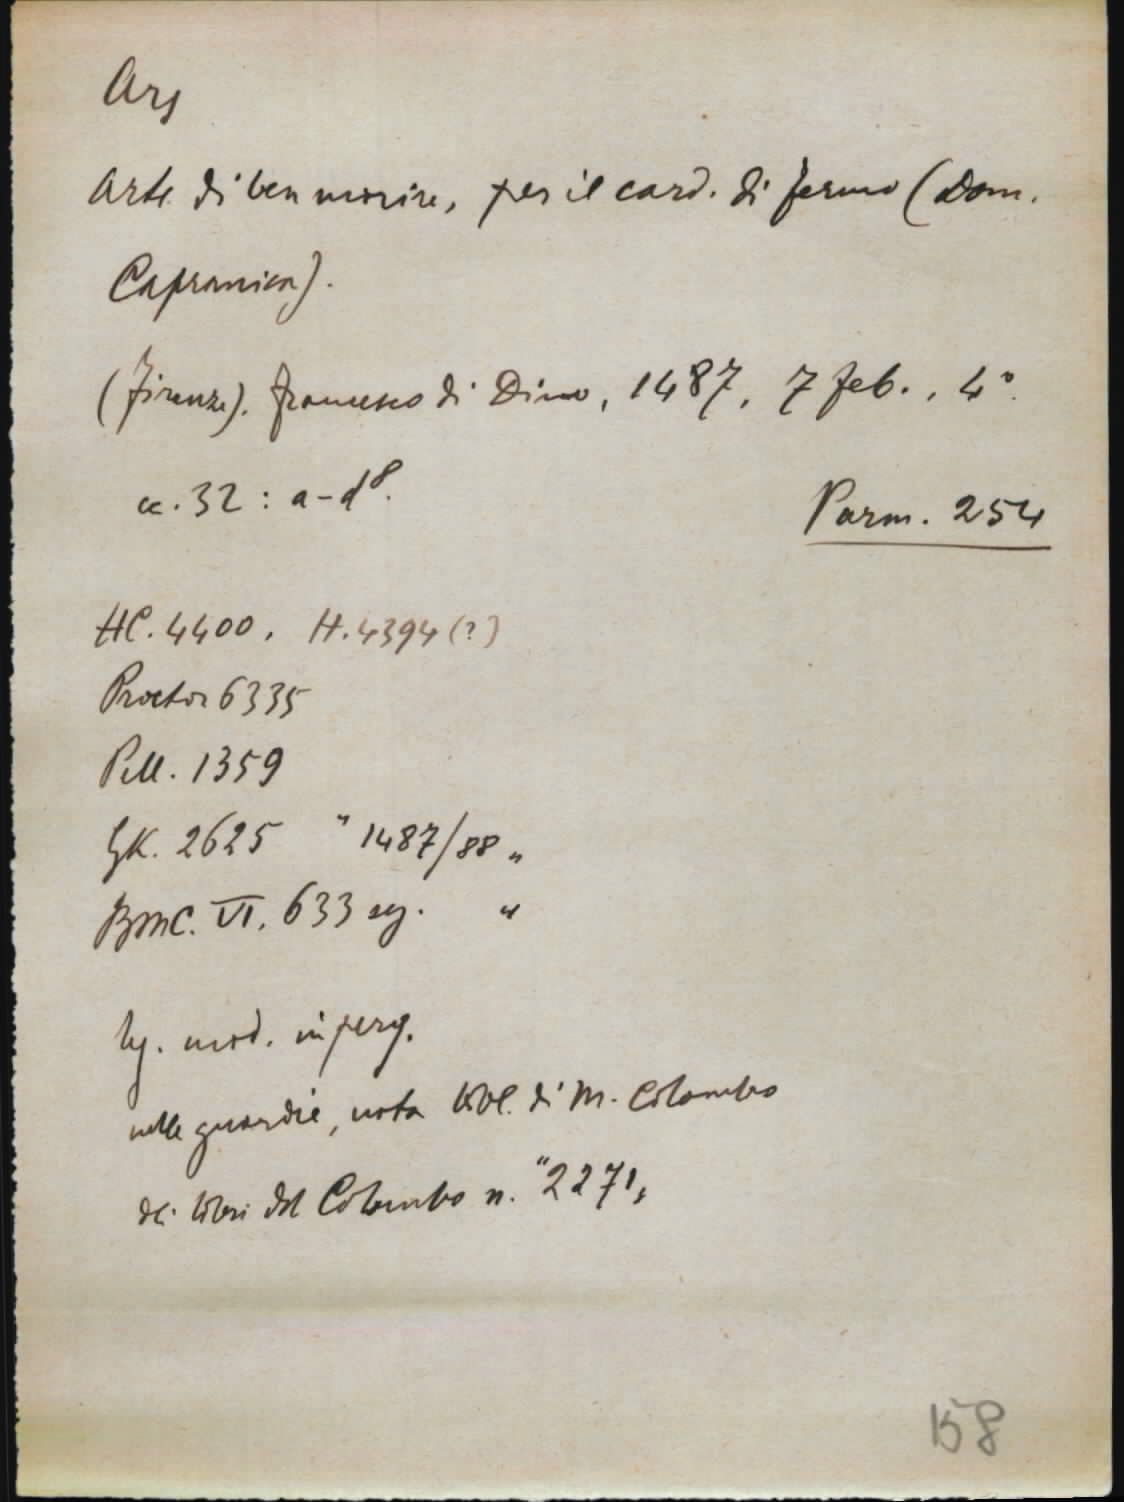 Ars
Arte di ben morire, per il card. di Fermo (Dom.
Capranica).
(Firenze). Francesco di Dino, 1487, 7 feb., 4°.
cc. 32 : a-d⁸.
Parm. 254
HC. 4400. H. 4394 (?)
Proctor 6335
Pell. 1359
GK. 2625 " 1487/88 "
BMC. VI. 633 sg. "
leg. mod. in perg.
nelle guardie, nota bibl. di M. Colombo
dei libri del Colombo n. "2271"
158